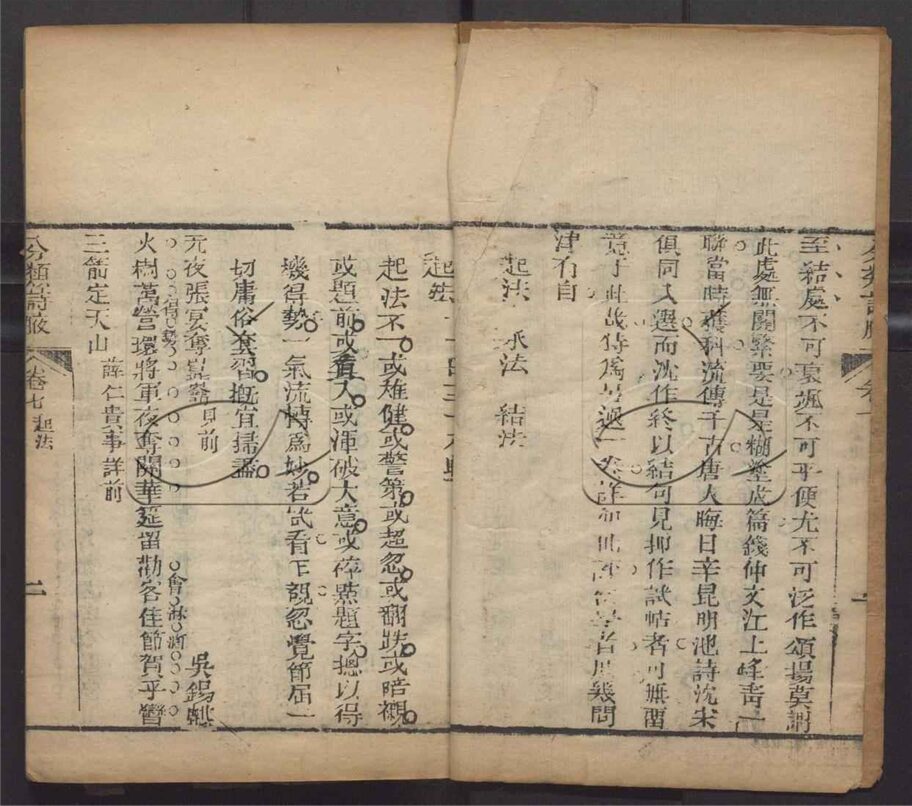 至結處不可衰颯不可平便尤不可泛作頌揚莫謂
此處無關緊要是是糊塗成篇錢仲文江上峰青一
聯當時擢科流傳千古唐人晦日幸昆明池詩沈宋
俱同入選而沈作終以結句見抑作試帖者可無留
意于此哉
津有自
起法 承法 結法
起法
起法不一或雄健或警策或超忽或翻跌或陪襯
或題前或直入或渾破大意或碎點題字總以得
機得勢一氣流轉為妙若
切庸俗套習概宜掃盡
元夜張宴奪崑崙 見前 吳錫麒
火樹萬營環將軍夜奪關華筵留勸客佳節賀平蠻
三箭定天山 薛仁貴事詳前
分類詩腋 卷七 起法 二